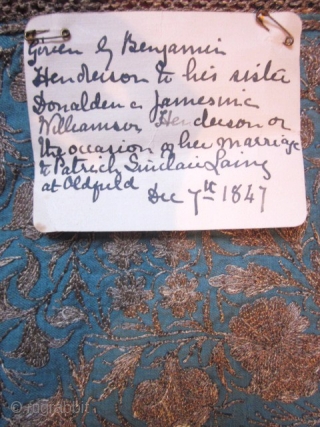 Given by Benjamin
Henderson to his sister
Donaldena Jamesina
Williamson Henderson on
the occasion of her marriage
to Patrick Sinclair Laing
at Oldfield
Dec 7th 1847
© rugrabbit